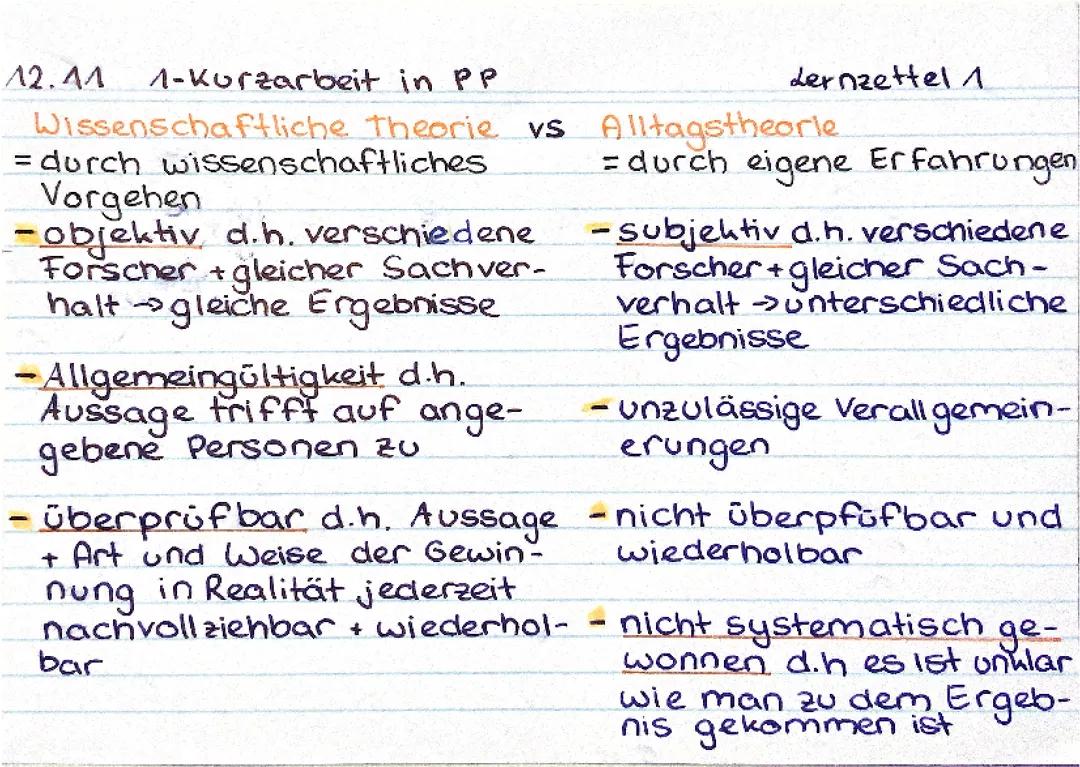 12.11 1-Kurzarbeit in PP
Lernzettel 1
Wissenschaftliche Theorie vs Alltagstheorie
= durch wissenschaftliches
Vorgehen
- objektiv d.h. verschiedene
Forscher + gleicher Sachver-
halt → gleiche Ergebnisse
- Allgemeingültigkeit d.h.
Aussage trifft auf ange-
gebene Personen zu
- überprüfbar d.h. Aussage
+ Art und Weise der Gewin-
nung in Realität jederzeit
nachvollziehbar + wiederhol-
bar
= durch eigene Erfahrungen
- subjektiv d.h. verschiedene
Forscher + gleicher Sach-
verhalt → unterschiedliche
Ergebnisse
- unzulässige Verallgemein-
erungen
- nicht überpfüfbar und
wiederholbar
- nicht systematisch ge-
wonnen d.h es ist unklar
wie man zu dem Ergeb-
nis gekommen ist